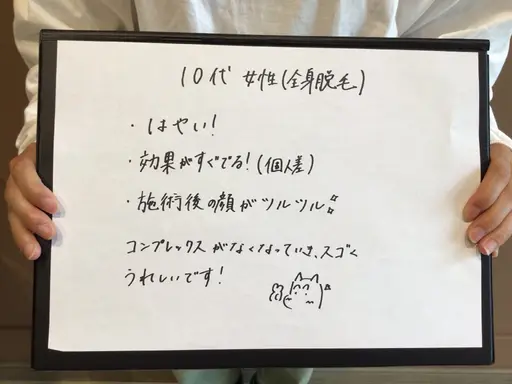 10代 女性(全身脱毛)
・はやい!
・効果がすぐでる!(個人差)
・施術後の顔がツルツル
コンプレックスがなくなっていき、スゴく
うれしいです!